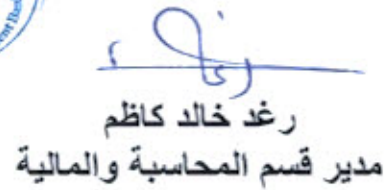 رغد خالد كاظم
مدير قسم المحاسبة والمالية